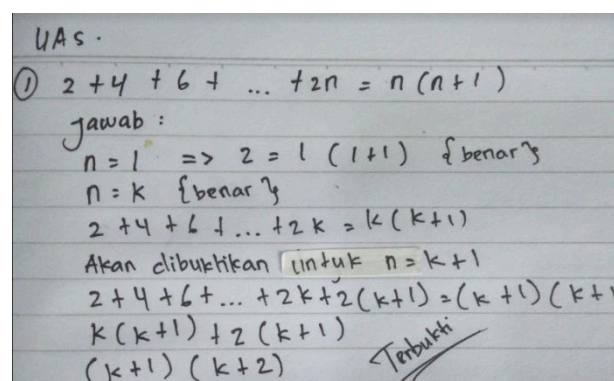 UAS.
① 2 + 4 + 6 + ... + 2n = n (n + 1)
Jawab :
n = 1 => 2 = 1 (1+1) {benar}
n = k {benar}
2 + 4 + 6 + ... + 2k = k (k+1)
Akan dibuktikan untuk n = k + 1
2 + 4 + 6 + ... + 2k + 2 (k+1) = (k + 1) (k +
k (k+1) + 2 (k+1)
(k+1) (k+2) Terbukti